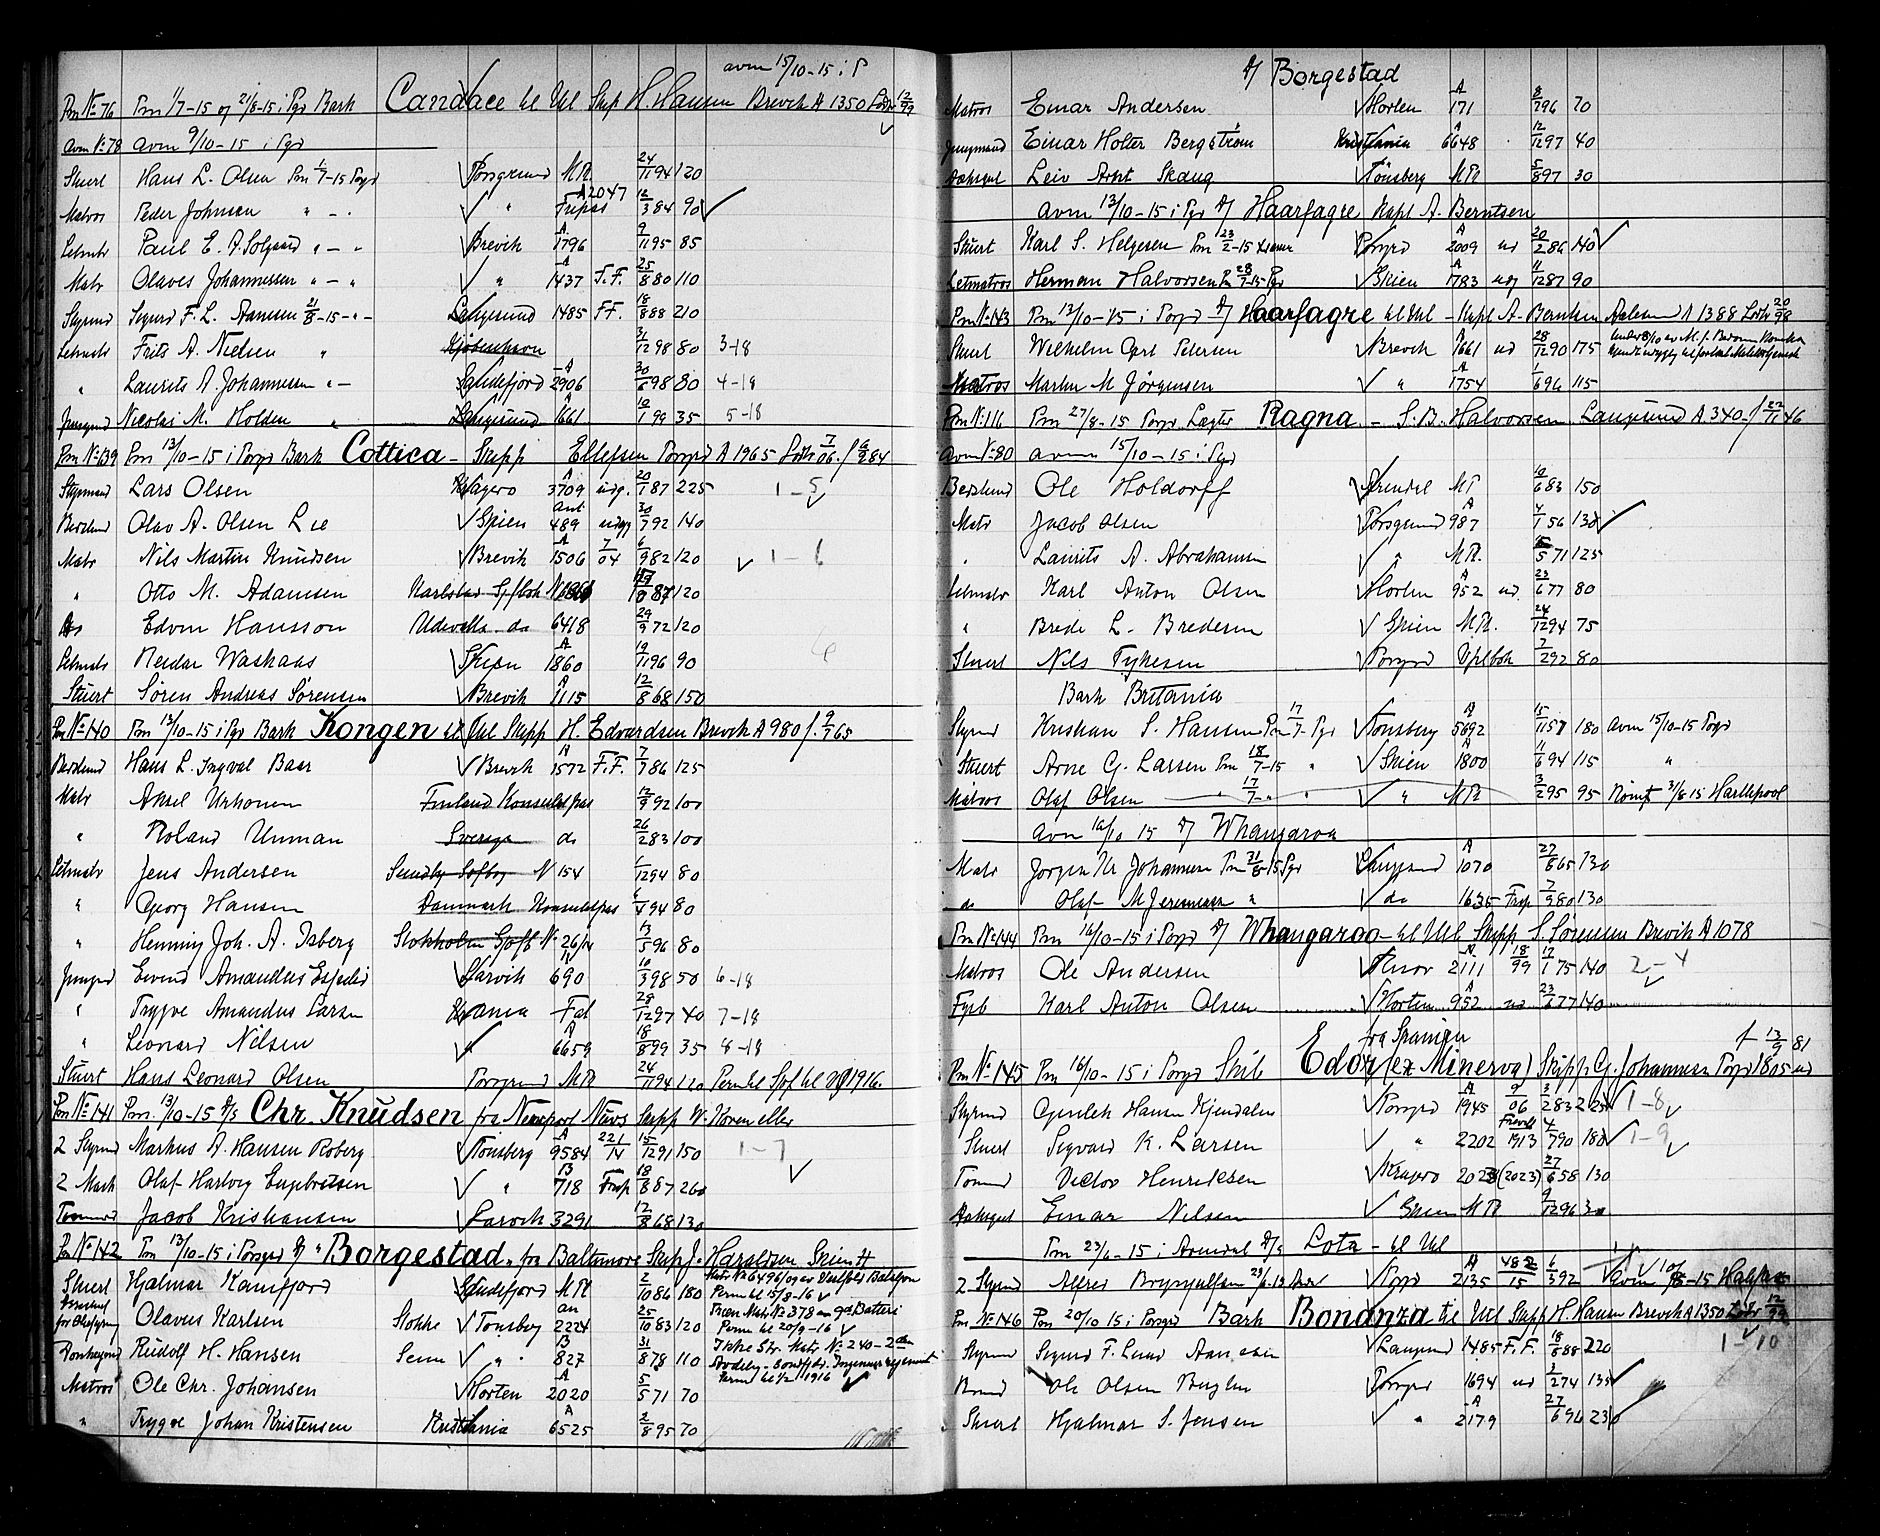 avm 15/10-15 i P
Pm No 76 Pm 1/7-15 og 21/8-15 i Pgr Bark Candace til Utl Skip H. Hansen Brevik A 1350 12/99
avm No 78 avm 9/10-15 i Pgr
Stuert Hans L. Olsen Pm 1/7-15 Porsgrund M R. 24/11 94 120
Matros Peder Johnsen " - " " A 2047 Fripas 12/3 84 90
Letmatr Paul E. A. Solgaard " - " Brevik A 1796 9/11 95 85
Matr Olaves Johannessen " - " " A 1437 F.F. 25/8 80 110
Styrmd Sigurd F. L. Aanesen 21/8-15 - " - Langesund 1485 FF. 18/8 88 210
Letmatr Frits A. Nielsen " Kjøbenhavn 31/12 98 80 3-18
" Laurits A. Johannessen " - Sandefjord A 2906 30/6 98 80 4-18
Jungmd Nicolai M. Holden " Langesund A 1661 10/1 99 35 5-18
Pm No 139 Pm 13/10-15 i Porgr Bark Cottica - Skipp Ellefsen Porsgrd A 1965 7/06. f 6/2 84
Styrmand Lars Olsen Kragerø A 3709 udg. 20/1 87 225 1-5
Bestmd Olav A. Olsen Lie Skien ant 489 udgg 30/7 92 140
Matr Nils Martin Knudsen Brevik A 1506 7/04 6/9 82 120 1-6
" Otto M. Adamsen Karlstad Sjfbok 87 120
do Edvin Hansson Udevalla do 6418 29/9 72 120
Letmatr Reidar Waskaas Skien A 1860 19/11 96 90
Stuert Søren Andreas Sørensen Brevik A 1115 12/8 68 150
Pm No 140 Pm 13/10-15 i Pgr Bark Kongen til Utl Skipp H. Edvardsen Brevik A 980 f. 9/7 65
Bestmd Hans L. Ingval Baar Brevik A 1572 F.F. 7/7 86 125
Matr Aksel Urhonen Finland Konsulatpas 12/9 92 100
" Roland Unman Sverige do 26/2 83 100
Letmatr Jens Andersen Sundby Søfbog N 154 1/12 94 80
" Georg Hansen Danmark Konsulatpas 6/4 94 80
" Henning Joh. A. Isberg Stokholm Sjøfb No 26/14 13/5 96 80
Jungmd Eivind Amandus Larvik A 690 10/3 98 50 6-18
" Trygve Amandus Larsen Krania Fol 28/12 97 40 7-18
" Leonard Nilsen " A 6659 18/8 99 35 8-18
Stuert Hans Leonard Olsen Porsgrund M R 24/11 94 120 Perm til 1916.
Pm No 141 Pm. 13/10-15 D/S Chr. Knudsen fra Newport News Skipp W. Horneller
2 Styrmd Markus A. Hansen Roberg Tønsberg A 9584 221/14 15/12 91 150 1-7
2 Mask Olaf Hartvig Engebretsen " B 718 Frip 18/8 87 260
Tømmrmd Jacob Kristiansen Larvik 3291 12/8 68 130
Pm No 142 Pm 13/10-15 i Porsgr D/ "Borgestad" fra Baltimore Skipp J. Haraldsen Skien
Stuert Hjalmar Kamfjord Sandefjord M R 2/10 86 180 Matr No 6496 Bataljon Perm til 15/8-16
Olavus Karlsen Stokke Tønsberg an 2224 25/10 83 120 Matr No 378 Batteri Perm til 20/9-16
Donkeymd Rudolf H. Hansen Sem " B 827 31/8 78 110 Ikke Str. Matr No 240 - 2den Avdeling Perm til 1/2 1916
Matros Ole Chr. Johansen Horten A 2020 5/5 71 70
" Trygve Johan Kristensen Kristiania A 6525 2/8 95 70
D/ Borgestad
Matros Einar Andersen Horten A 171 8/7 96 70
Jungmand Einar Holter Bergstrøm Kristiania A 6648 12/12 97 40
Dæksgut Leiv Arnt Skaug Tønsberg M R 5/8 97 30
avm 13/10-15 i Pgr D/ Haarfagre Kapt A. Berntsen
Stuert Karl S. Helgesen Pm 23/2-15 Porsgrd A 2009 ud 20/2 86 140
Letmatros Herman Halvorsen Pm 28/7-15 Pgr Skien A 1783 udg 11/12 87 90
Pm No 143 Pm 13/10-15 i Porgr D/ Haarfagre til Utl - Kapt A. Berntsen Aalesund A 1388 20/98
Stuert Wilhelm Carl Petersen Brevik A 1661 ud 28/12 90 175
Matros Martin M Jørgensen " A 1754 1/6 96 115
Pm No 116 Pm 27/8-15 Porgr Lægter Ragna - S. B. Halvorsen Langesund A 340 - f 22/11 46
avm No 80 avm 15/10-15 i Pgr
Bestmd Ole Holdorff Arendal M R 10/6 83 150
Matr Jacob Olsen Porsgrund A 987 4/1 56 130
" Laurits A. Abrahamsen " M R. 5 71 125
Letmatr Karl Anton Olsen Horten A 952 ud. 23/6 77 80
" Brede L. Bredesen Skien M R. 24/12 94 75
Stuert Nils Tykesen Porsgrd Uplbok 7/2 92 80
Bark Britania
Styrmd Kristian S. Hansen Pm 17/7- Pgr Tønsberg A 5692 15/11 57 180 avm 15/10-15 Porgr
Stuert Arne G. Larsen Pm 18/7-15 " Skien A 1800 11/6 94 115 "
Matros Olaf Olsen 17/7- " " " M R 3/2 95 95 Rømt 3/8 15 Hartlepool
avm 16/10 15 D/ Whangaroa
Matr Jørgen Kr Johannesen Pm 21/8-15 Pgr Langesund A 1070 27/8 65 130
do Olaf M Jeremiasen " do 1635 Frip 7/9 80 130
Pm No 144 Pm 16/10-15 i Porgr D/ Whangaroa - til Utl Skipp S. Sørensen Brevik A 1078
Matros Ole Andersen A 2111 18/99 17/1 75 140 2-4
Fyrb Karl Anton Olsen Horten A 952 ud 23/6 77 140
fra Spanien f 13/9 81
Pm No 145 Pm 16/10-15 i Porgr Skib Edor (ex Minerva) Skipp G. Johannesen Porgr 1805 ud
Styrmd Gerulek Hansen Kjendalen Porsgrd A 1945 9/06 3/2 83 225 1-8
Stuert Sigvard K. Larsen " 2202 1913 4/7 90 180 1-9
Tømmd Victor Henriksen Kragerø 2023 (2023) 27/6 58 130
Dæksgut Einar Nilsen Skien M R 9/12 96 30
Pm 23/6-15 i Arendal D/S Lota - til Utl
2 Styrmd Alfred Brynjulfsen Porgr A 2135 482/15 6/3 92 avm
Pm No 146 Pm 20/10 15 i Porsgr Bark Bonanza til Utl Skipp H. Hansen Brevik A 1350 12/99
Styrmd Sigurd F. Lund Aanesen Langesund 1485 F.F. 18/8 88 220 1-10
Bmd Ole Olsen Porsgrd 1694 ud 3/2 74 135
Stuert Hjalmar S. Jensen " A 2179 27/6 94 230